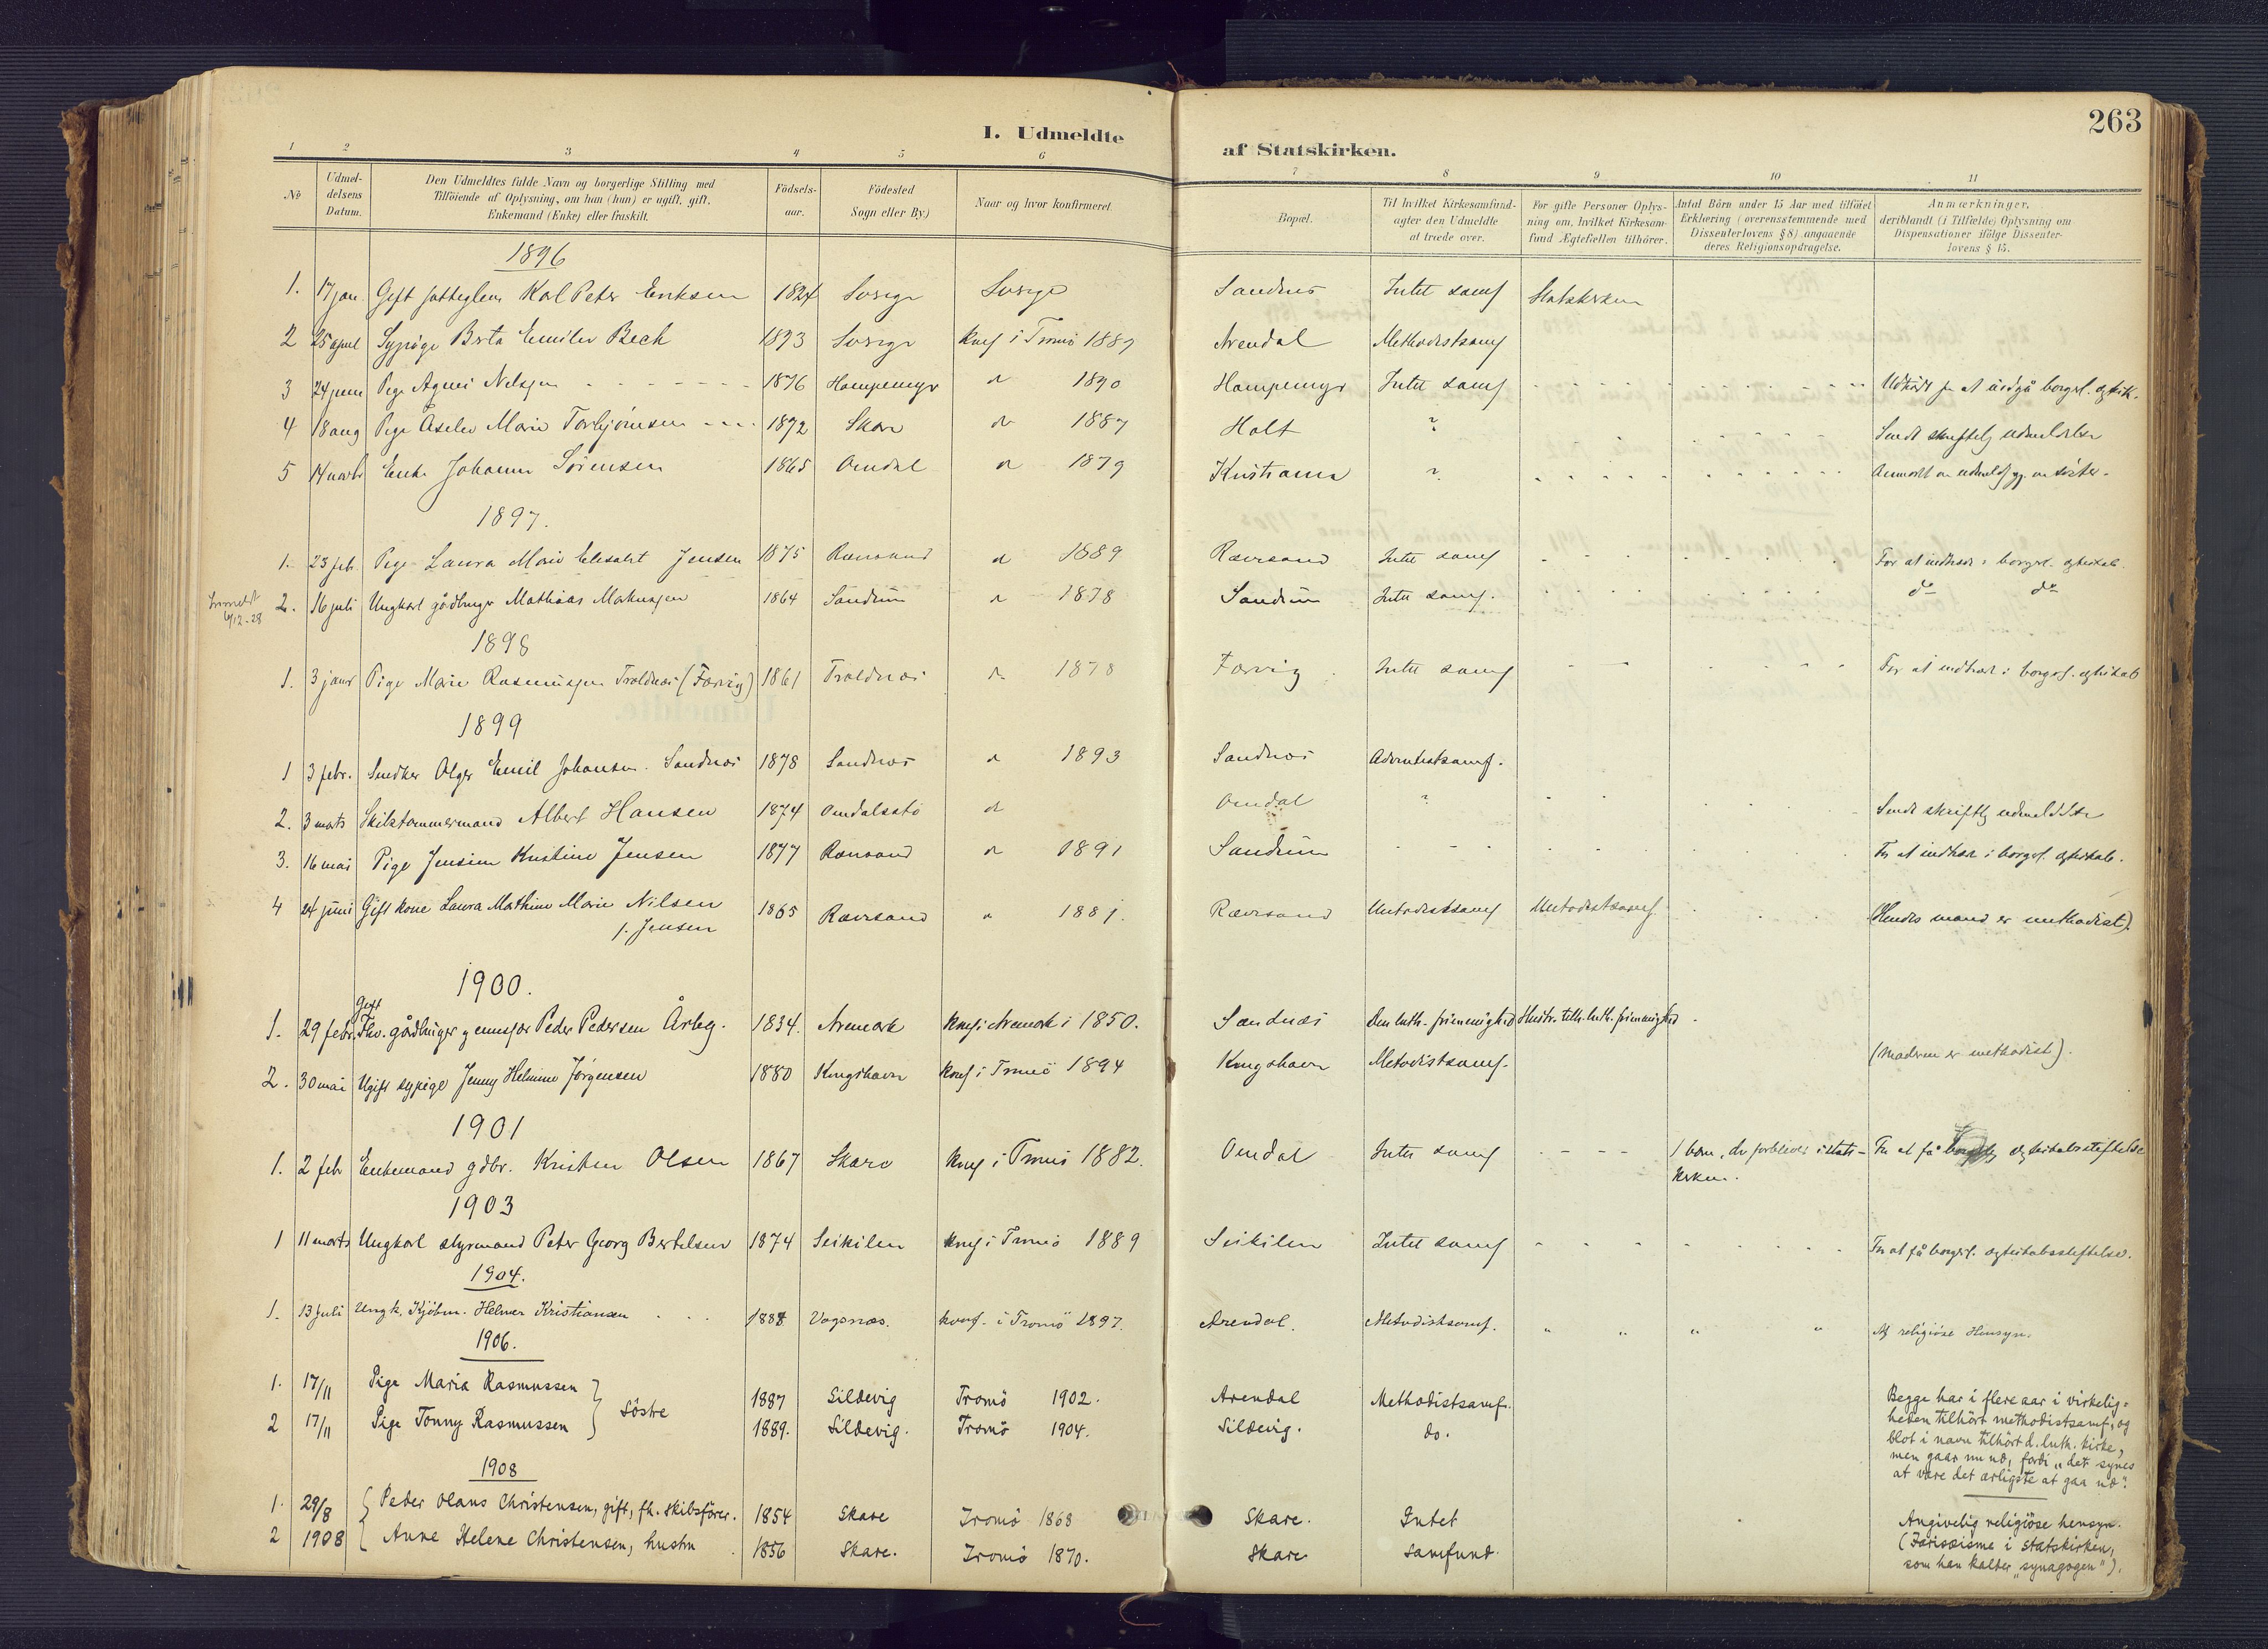 263
I. Udmeldte af Statskirken.
1 2 3 4 5 6 7 8 9 10 11
No
Udmeldelsens Datum.
Den Udmeldtes fulde Navn og borgerlige Stilling med
Tilföiende af Oplysning, om han (hun) er ugift, gift,
Enkemand (Enke) eller fraskilt.
Födselsaar.
Födested
Sogn eller By.)
Naar og hvor konfirmeret.
Bopæl.
Til hvilket Kirkesamfund
agter den Udmeldte
at træde over.
For gifte Personer Oplys-
ning om, hvilket Kirkesam-
fund Ægtefællen tilhörer.
Antal Börn under 15 Aar med tilföiet
Erklæring (overensstemmende med
Dissenterlovens § 8) angaaende
deres Religionsopdragelse.
Anmærkninger,
deriblandt (i Tilfælde) Oplysning om
Dispensationer ifölge Dissenter-
lovens § 15.
1896
1. 17 jan. Gift Karl Peter Eriksen 1824 Sverige Sverige Sandnes Intet samf Statskirken
2 25 april Sypige Berta Emilie Bech 1873 Sverige konf i Tromö 1887 Arendal Methodistsamf
3 24 juni Pige Agnes Nilssen 1876 Hampemyr do 1890 Hampemyr Intet samf
4 18 aug Pige Åselie Marie Torbjörnsen 1872 Skare do 1887 Holt ? Sendt skriftlig udmeldelse
5 14 novbr Enke Johanne Sörensen 1865 Omdal do 1879 Kristiania ?
1897.
1. 23 feb. Pige Laura Marie Elisabet Jensen 1875 Rævesand do 1889 Rævesand Intet samf For at indtræde i borgerl. ægteskab.
Innmeldt 6/12-28
2. 16 juli Ungkarl gårdbruger Mathias Makussen 1864 Sandum do 1878 Sandum Intet samf. do do
1898
1. 3 janr Pige Marie Rasmussen Troldnes (Færvig) 1861 Troldnæs do 1878 Færvig Intet samf For at indtræde i borgerl. ægteskab
1899
1 3 febr. Snedker Olger Emil Johansen. Sandnæs 1878 Sandnæs do 1893 Sandnæs Adventistsamf.
2. 3 marts Skibstømmermand Albert Hansen 1874 Omdalsstö do Omdal ? Sendt skriftlig udmeldelse
3. 16 mai Pige Jensine Kristine Jensen 1877 Rævesand do 1891 Sandum For at indtræde i borgerl. ægteskab.
4 24 juni Gift kone Laura Mathine Marie Nilsen 1865 Rævesand do 1881. Rævesand Metodistsamf Metodistsamf (Hendes mand er methodist).
f. Jensen
1900.
1. 29 febr. Gift Fhv. gårdbruger Peder Pedersen Årbog. 1834. Aremark konf i Aremark i 1850. Sandnæs Den luth. frimenighed Hustr. tilh. luth. frimenighed
2. 30 mai Ugift sypige Jenny Helmine Jörgensen 1880 Kongshavn konf i Tromö 1894 Kongshavn Metodistsamf. (Moderen er methodist).
1901
1. 2 feb Enkemand gdbr. Kristen Olsen 1867 Skare konf i Tromö 1882. Omdal Intet samf 1 barn, der forbliver i stats- For at få borgerlig ægteskabsstiftelse
kirken.
1903
1 11 marts Ungkarl styrmand Peter Georg Bertelsen 1874 Seikilen konf i Tromö 1889 Seikilen Intet samf For at få borgerl. ægteskabsstiftelse.
1904.
1. 13 juli Ungk. Kjöbm. Helmer Kristiansen 1888 Vagsnæs. konf. i Tromö 1897. Arendal. Metodistsamf. " " " " Af religiöse Hensyn.
1906.
1. 17/11 Pige Maria Rasmussen } söstre 1887 Sildevig Tromö 1902. Arendal Methodistsamf.
2 17/11 Pige Tonny Rasmussen 1889. Sildevig. Tromö 1904. Sildevig. do.
Begge har i flere aar i virkelig-
heden tilhört methodistsamf, og
blot i navn tilhört d. luth. kirke,
men gaar nu ud, fordi „det synes
at være det ærligste at gaa ud".
1908
1. 29/8 { Peder Olaus Christensen, gift, fh. skibsförer. 1854 Skare Tromö 1868 Skare. Intet
2 1908 { Anne Helene Christensen, hustru 1856 Skare. Tromö 1870. Skare samfund.
Angivelig religiöse hensyn.
(Farisæisme i statskirken,
som han kalder „synagogen").